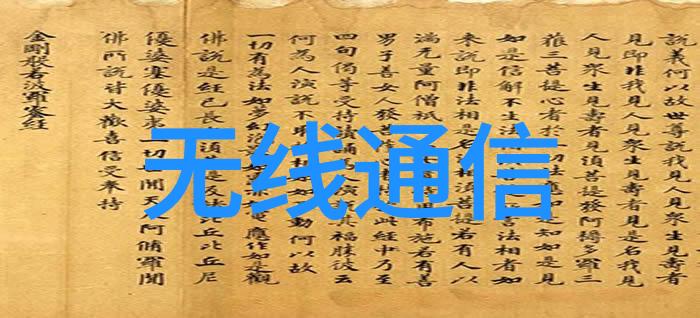 說義何以故世尊說我見人見眾生見壽者
見即非我見人見眾生見壽者見是名我見
人見眾生見壽者見須菩提發阿耨多羅三
菩提心者於一切法應如是知如是見
如是信解不生法相言法相者如
來說即非法相是名法相須菩提若有人以
滿无量阿僧祇布施若有善
男子善女人發菩此經乃至
四句偈等受持讀誦演其福勝彼云
何為人演說不取動何以故
一切有為法如夢幻應作如是觀
佛說是經已長老須菩提及諸比丘比丘尼
優婆塞優婆夷一切世間天人阿脩羅聞
佛所說皆大歡喜信受奉持
金剛般若波羅蜜經
无线通信